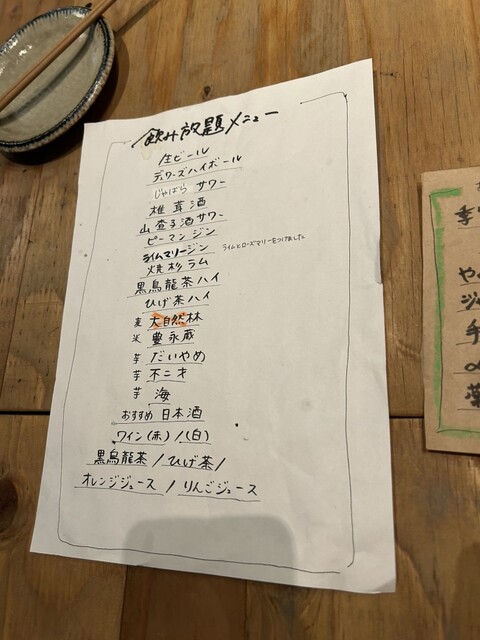 飲み放題メニュー
生ビール
デュワーズハイボール
じゃばら サワー
椎茸酒
山査子酒サワー
ピーマンジン
ライムマリージン ライムとローズマリーをつけました
焼杉ラム
黒烏龍茶ハイ
ひげ茶ハイ
麦 大自然林
米 豊永蔵
芋 だいやめ
芋 不二才
芋 海
おすすめ 日本酒
ワイン(赤)/(白)
黒烏龍茶/ひげ茶/
オレンジジュース / りんごジュース